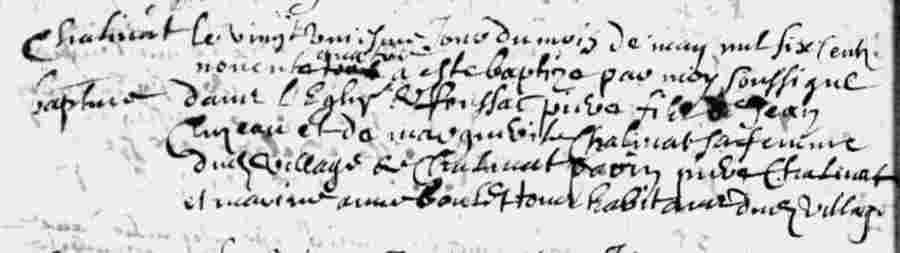 Chalinat le vingt uniesme jour du mois de may mil six cents
nonente quatre a este baptize par moy soussigne
baptesme dans l'Eglise de foussac pierre fils de Jean
Cluzeau et de marguerite Chalinat sa femme
dud village de Chalinat parin pierre Chalinat
et marine anne boulet tous habitans dud village